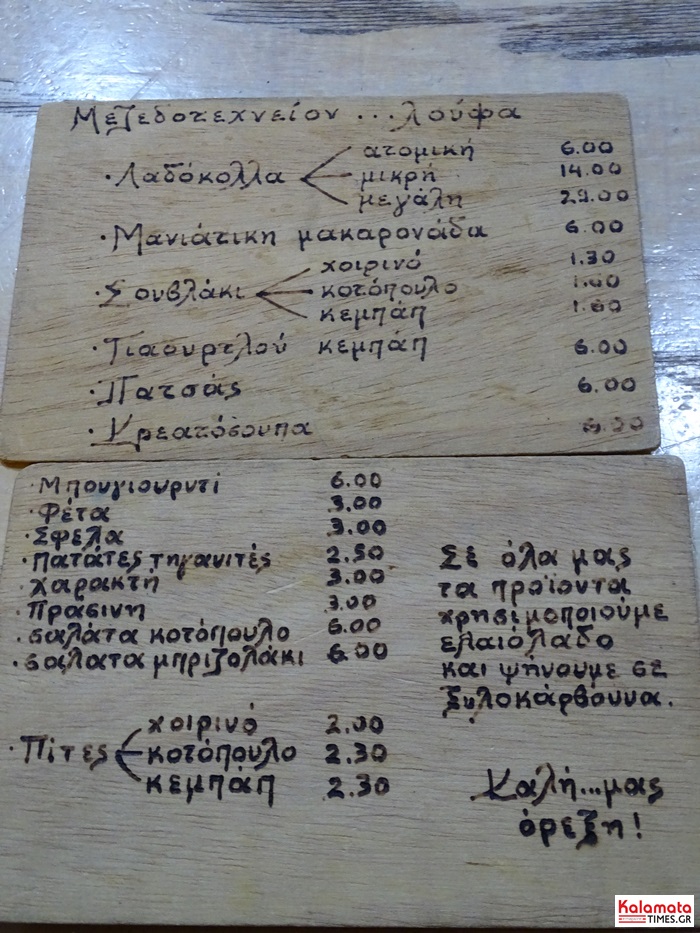 Μεζεδοτεχνείον ... λούφα
· Λαδόκολλα ατομική 6.00
μικρή 14.00
μεγάλη 28.00
· Μανιάτικη μακαρονάδα 6.00
· Σουβλάκι χοιρινό 1.30
κοτόπουλο 1.60
κεμπάπ 1.60
· Γιαουρτλού κεμπάπ 6.00
· Πατσάς 6.00
· Κρεατόσουπα
· Μπουγιουρντί 6.00
· Φέτα 3.00
· Σφελα 3.00
· Πατάτες τηγανιτές 2.50
· Χαρακτή 3.00
· Πρασινη 3.00
· σαλάτα κοτόπουλο 6.00
· σαλατα μπριζολάκι 6.00
· Πίτες χοιρινό 2.00
κοτόπουλο 2.30
κεμπάπ 2.30
Σε όλα μας
τα προϊοντα
χρησιμοποιούμε
ελαιόλαδο
και ψήνουμε σε
ξυλοκάρβουνα.
Καλή...μας
όρεξη!
Kalamata
TIMES.GR